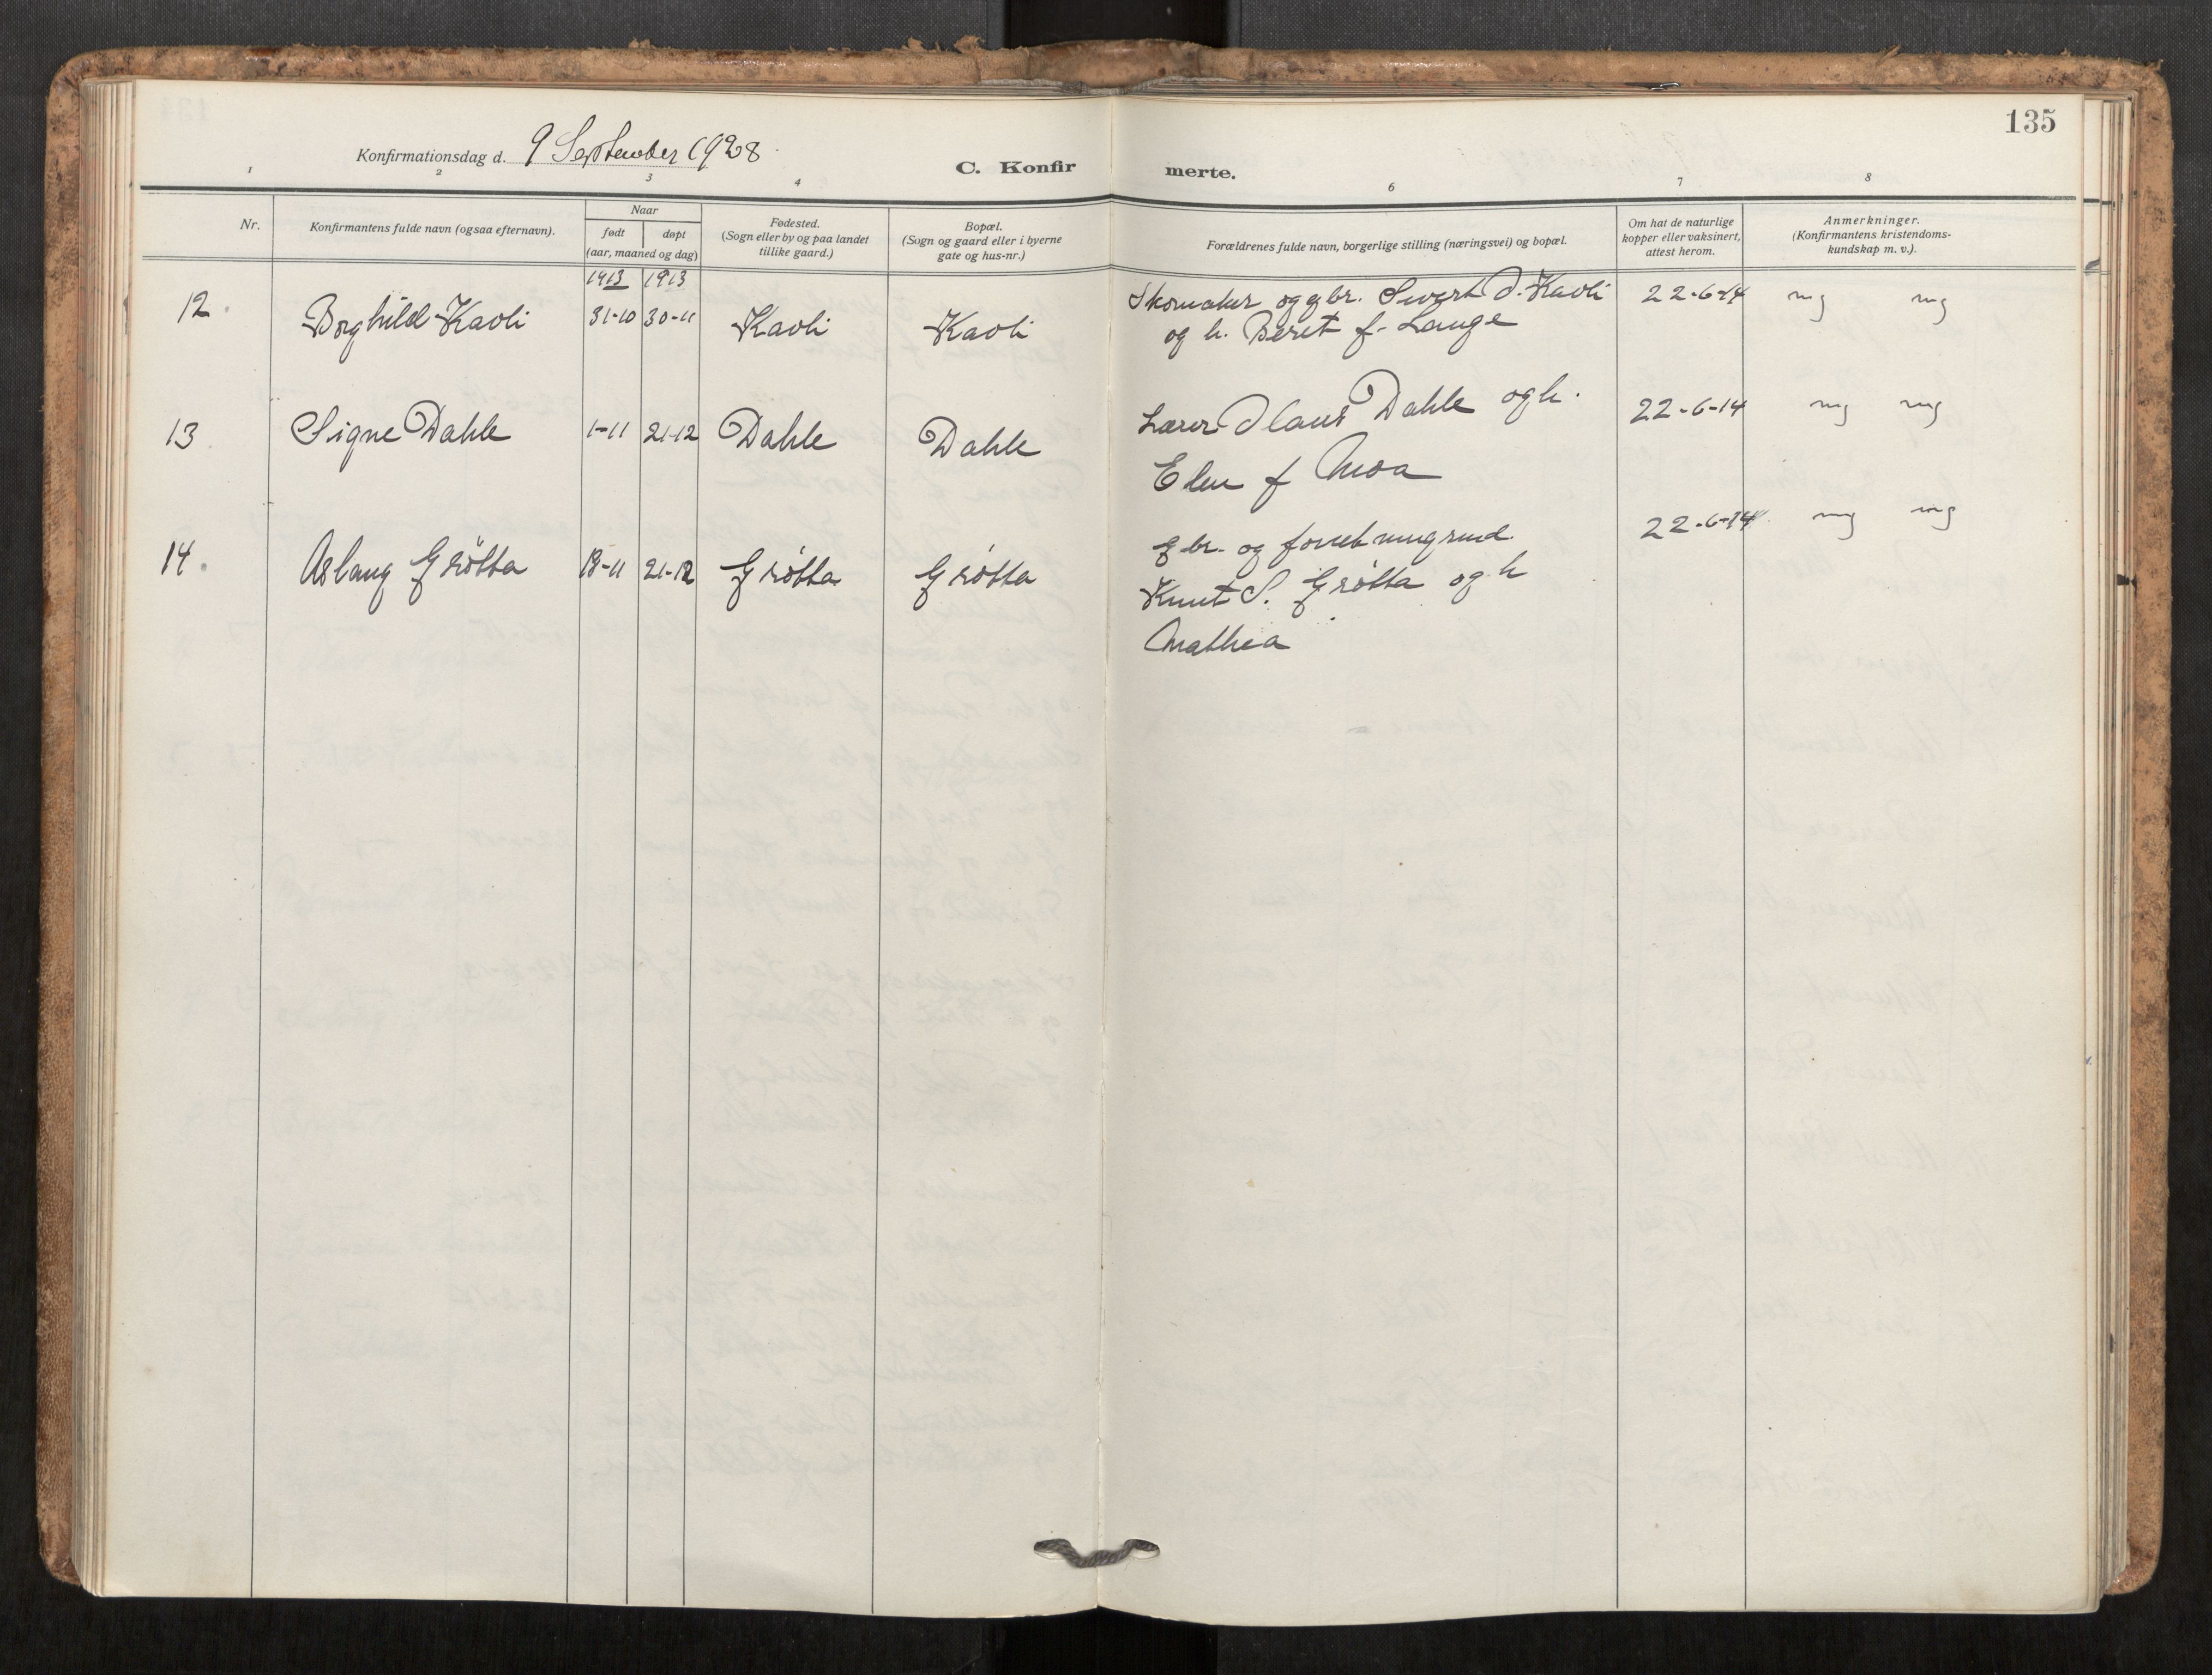 135
Konfirmationsdag d. 9 September 1928
C. Konfirmerte.
1 2 3 4 6 7 8
Nr.
Konfirmantens fulde navn (ogsaa efternavn).
Naar
født døpt
(aar, maaned og dag)
Fødested.
(Sogn eller by og paa landet
tillike gaard.)
Bopæl.
(Sogn og gaard eller i byerne
gate og hus-nr.)
Forældrenes fulde navn, borgerlige stilling (næringsvei) og bopæl.
Om hat de naturlige
kopper eller vaksinert,
attest herom.
Anmerkninger.
(Konfirmantens kristendoms-
kundskap m. v.).
1913 1913
12. Borghild Kavli 31-10 30-11 Kavli Kavli Skomaker og gbr. Sivert O. Kavli 22-6-14 mg mg
og h. Beret f. Lange
13 Signe Dahle 1-11 21-12 Dahle Dahle Lærer Olaus Dahle og h. 22-6-14 mg mg
Elen f Moa
14. Aslaug Grötta 18-11 21-12 Grötta Grötta gbr. og 22-6-14 mg mg
Knut S. Grötta og h
Mathea